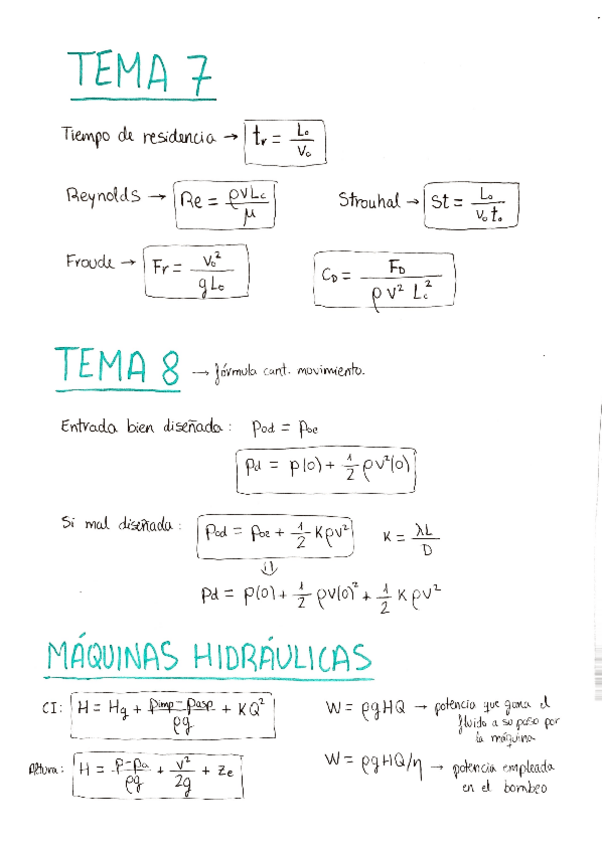 TEMA 7
Tiempo de residencia → tr = L₀/v₀
Reynolds → Re = ρvLc/μ
Strouhal → St = L₀/v₀t₀
Froude → Fr = v₀²/gL₀
C_D = F_D/ρv²Lc²
TEMA 8 → fórmula cant. movimiento.
Entrada bien diseñada: Pod = Poe
Pd = p(0) + 1/2 ρv²(0)
Si mal diseñada: Pod = Poe + 1/2 Kρv² K = λL/D
⇓
Pd = p(0) + 1/2 ρv(0)² + 1/2 Kρv²
MÁQUINAS HIDRÁULICAS
CI: H = Hg + Pimp-Pasp/ρg + KQ²
W = ρgHQ → potencia que gana el
fluido a su paso por
la máquina
Altura: H = P-Pa/ρg + v²/2g + Ze
W = ρgHQ/η → potencia empleada
en el bombeo